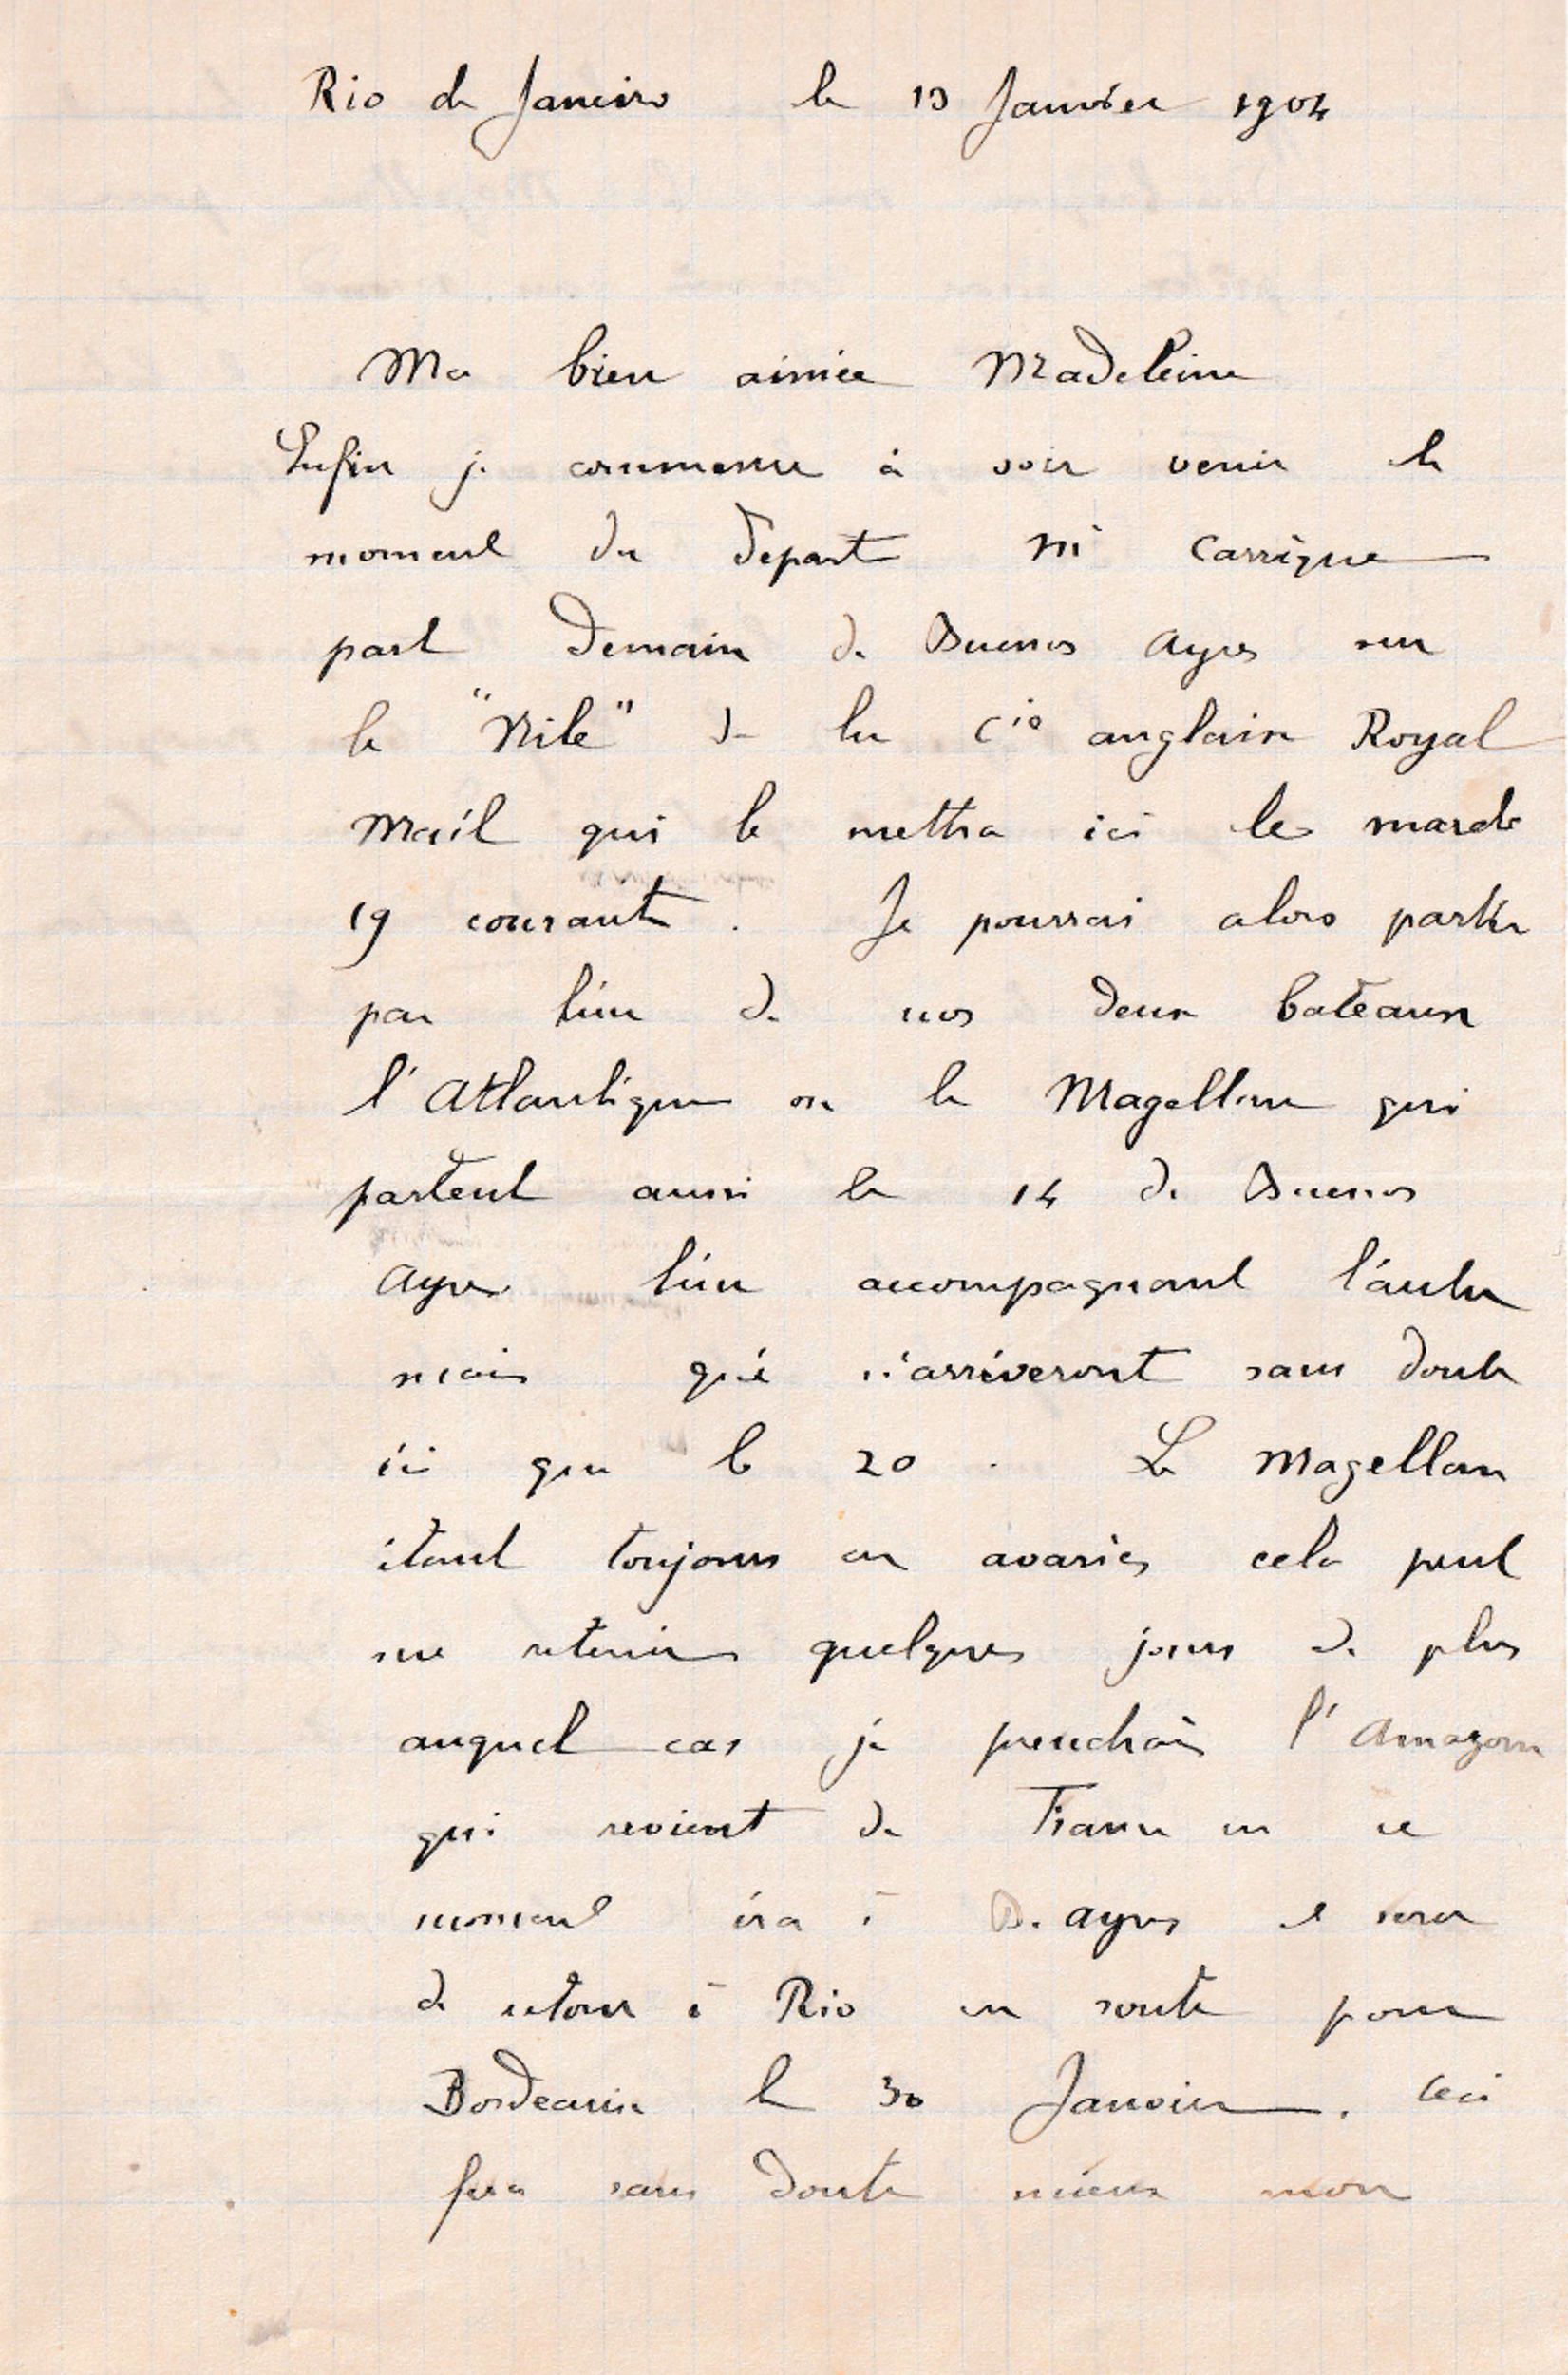 Rio de Janeiro le 13 Janvier 1904
Ma bien aimée Madeleine
Enfin je commence à voir venir le
moment du départ Mr Carrigue
part demain de Buenos Ayres sur
le "Nile" de la Cie anglaise Royal
Mail qui le mettra ici le mardi
19 courant . Je pourrai alors partir
par l'un de nos deux bateaux
l'Atlantique ou le Magellan qui
partent aussi le 14 de Buenos
Ayres l'un accompagnant l'autre
mais qui n'arriveront sans doute
ici que le 20 . Le Magellan
étant toujours en avaries cela peut
me retenir quelques jours de plus
auquel cas je prendrais l'Amazone
qui revient de France en ce
moment ira à B. Ayres et sera
de retour à Rio en route pour
Bordeaux le 30 Janvier . Ceci
fera sans doute mieux mon